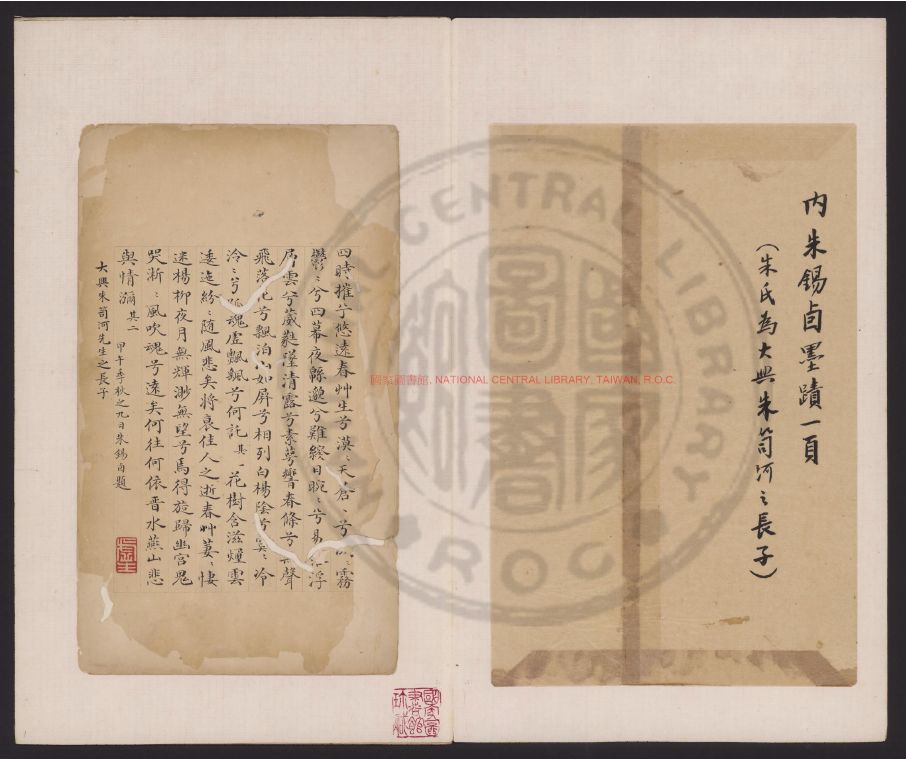 内朱錫卣墨蹟一頁
(朱氏為大興朱笥河之長子)
四時摧兮悠遠春艸生兮漠漠天倉倉兮 霧
鬱鬱兮四幕夜縣邈兮難終日晼晼兮易 浮
雲兮葳蕤墜清露兮素萼響春條兮 聲
飛落花兮飄泊 如屏兮相列白楊陰兮冥冥冷
泠泠兮 魂虛飄颻兮何託其一花樹含滋煙雲
逶迤紛紛随風悲矣將哀佳人之逝春艸萋萋悽
迷楊柳夜月無輝渺無望兮馬得旋歸幽宮鬼
哭淅淅風吹魂兮遠矣何往何依晋水燕山悲
與情瀰其二 甲午季秋之九日朱錫卣題
大興朱笥河先生之長子
國家圖書館, NATIONAL CENTRAL LIBRARY, TAIWAN, R.O.C.
NATIONAL CENTRAL LIBRARY
ROC
國家圖書館
國家圖書館珍藏